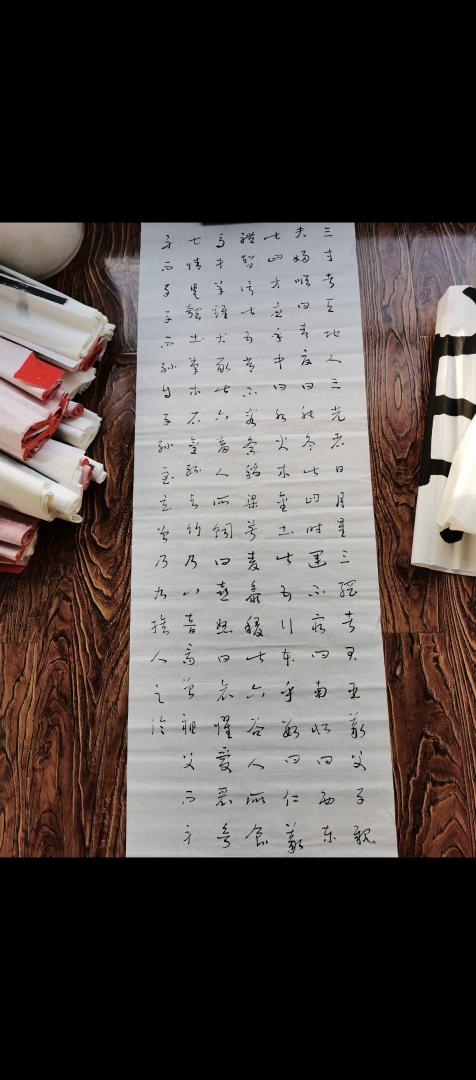 三才者天地人三光者日月星三綱者君臣義父子親
夫婦順曰春夏曰秋冬此四时運不窮曰南北曰西东
此四方应乎中曰水火木金土此五行本乎數曰仁義
禮智信此五常不容紊稻粱菽麦黍稷此六谷人所食
马牛羊雞犬豕此六畜人所飼曰喜怒曰哀懼愛惡欲
七情具匏土革木石金絲与竹乃八音高曾祖父而身
身而子子而孙自子孙至玄曾乃九族人之伦